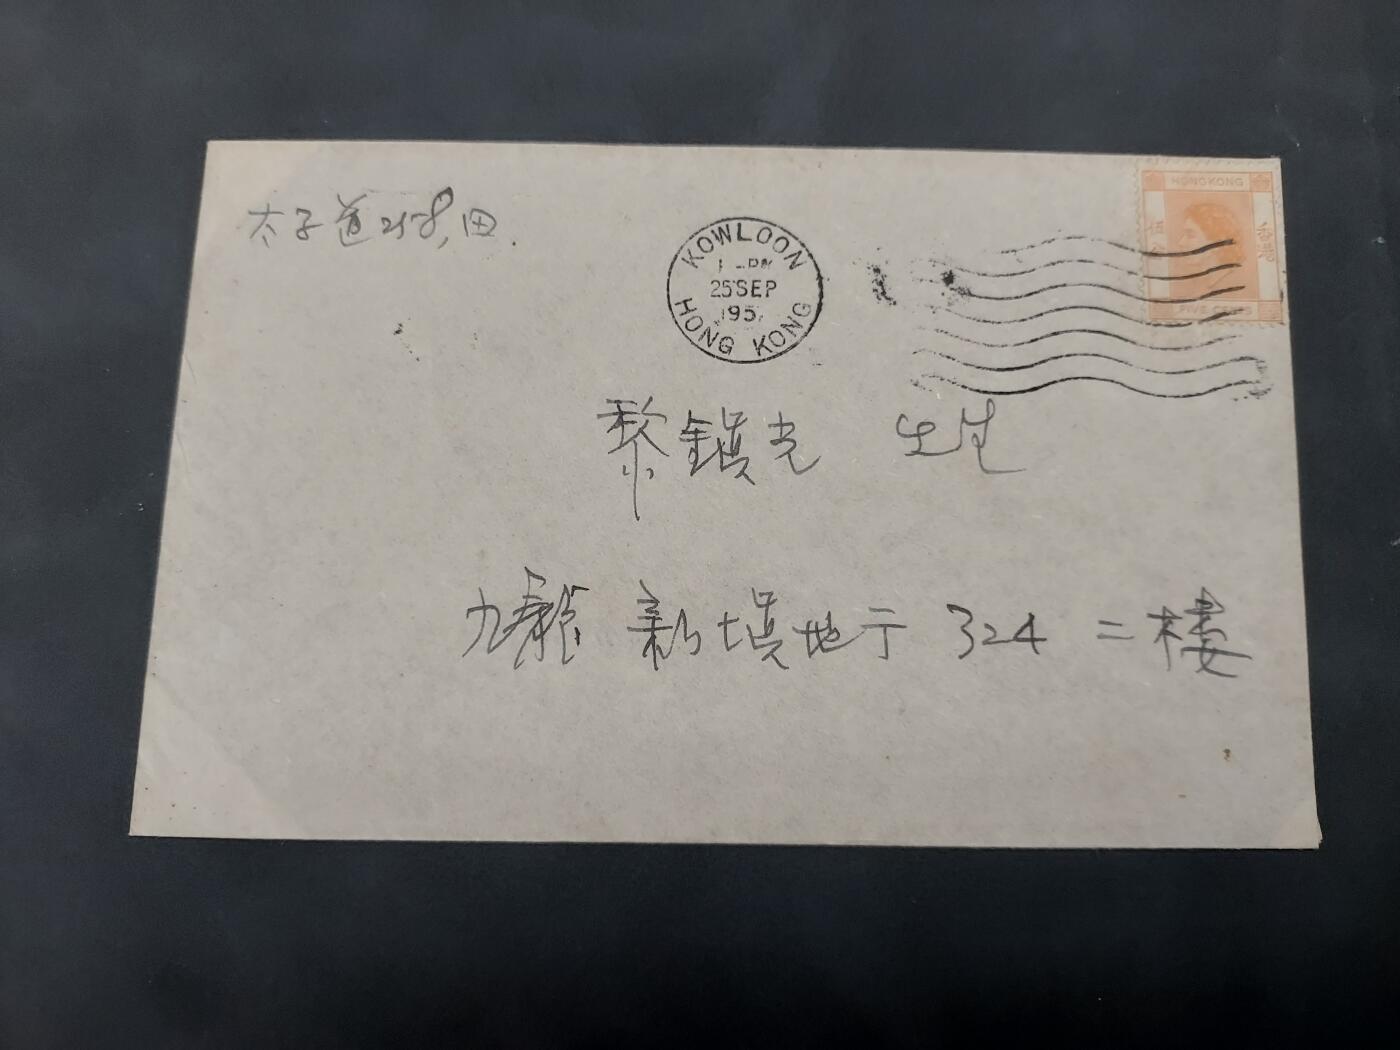 太子道258,田.
KOWLOON
PM
25 SEP
195
HONG KONG
HONG KONG
伍
香港
FIVE CENTS
黎鎮光 先生
九龍 新填地亍 324 二樓